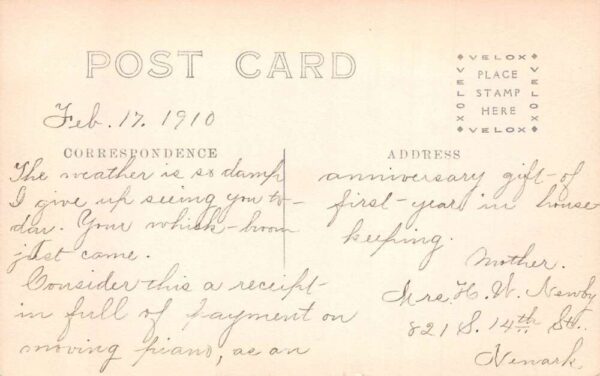 POST CARD
VELOX
VELOX
VELOX
VELOX
PLACE
STAMP
HERE
Feb. 17. 1910
CORRESPONDENCE
The weather is so damp
I give up seeing you to-
day. Your whisk-broom
just came.
Consider this a receipt
in full of payment on
moving piano, as an
ADDRESS
anniversary gift of
first-year in house
keeping.
Mother.
Mrs. H. W. Newby
821 S. 14th St.
Newark.